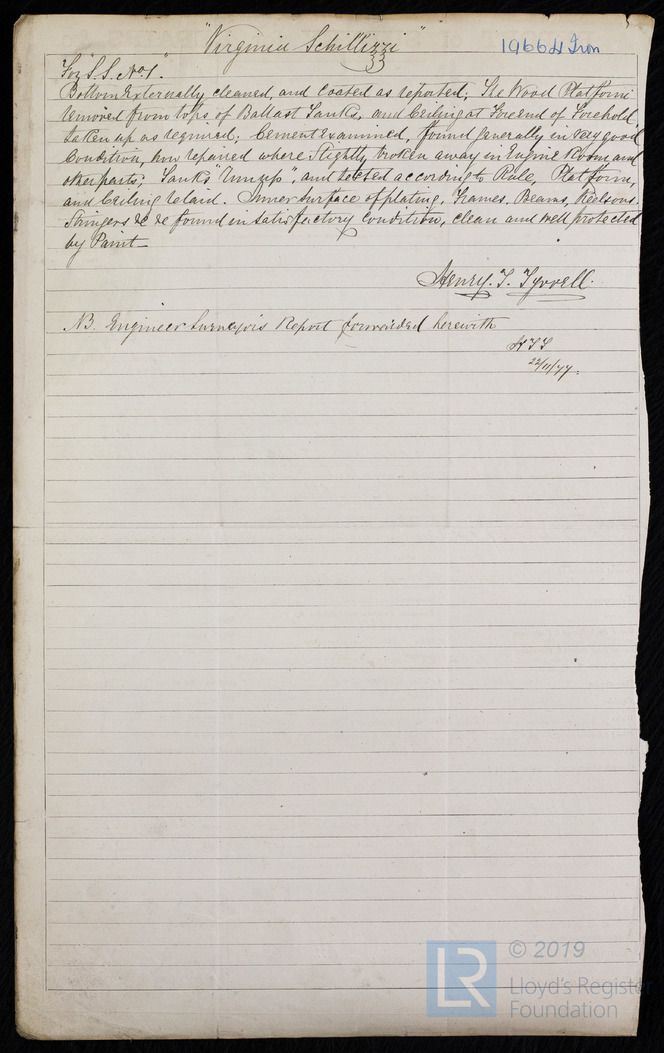 "Virginia Schillizzi"
19664 Iron
For S.S. No. 1.
Bottom Externally cleaned, and Coated as reported; The Wood Platform
removed from tops of Ballast Tanks, and Ceiling at Fore end of Forehold,
taken up as required. Cement examined, found generally in very good
Condition, how repaired where slightly broken away in Engine Room and
other parts; Tanks "run up", and tested according to Rule, Platform,
and Ceiling relaid. Inner surface of plating, Frames, Beams, Keelsons
Stringers &c &c found in satisfactory condition, clean and well protected
by Paint
Henry. T. Tyrrell.
NB. Engineer Surveyor's Report forwarded herewith
HTT
22/11/77.
© 2019
LR
Lloyd's Register
Foundation